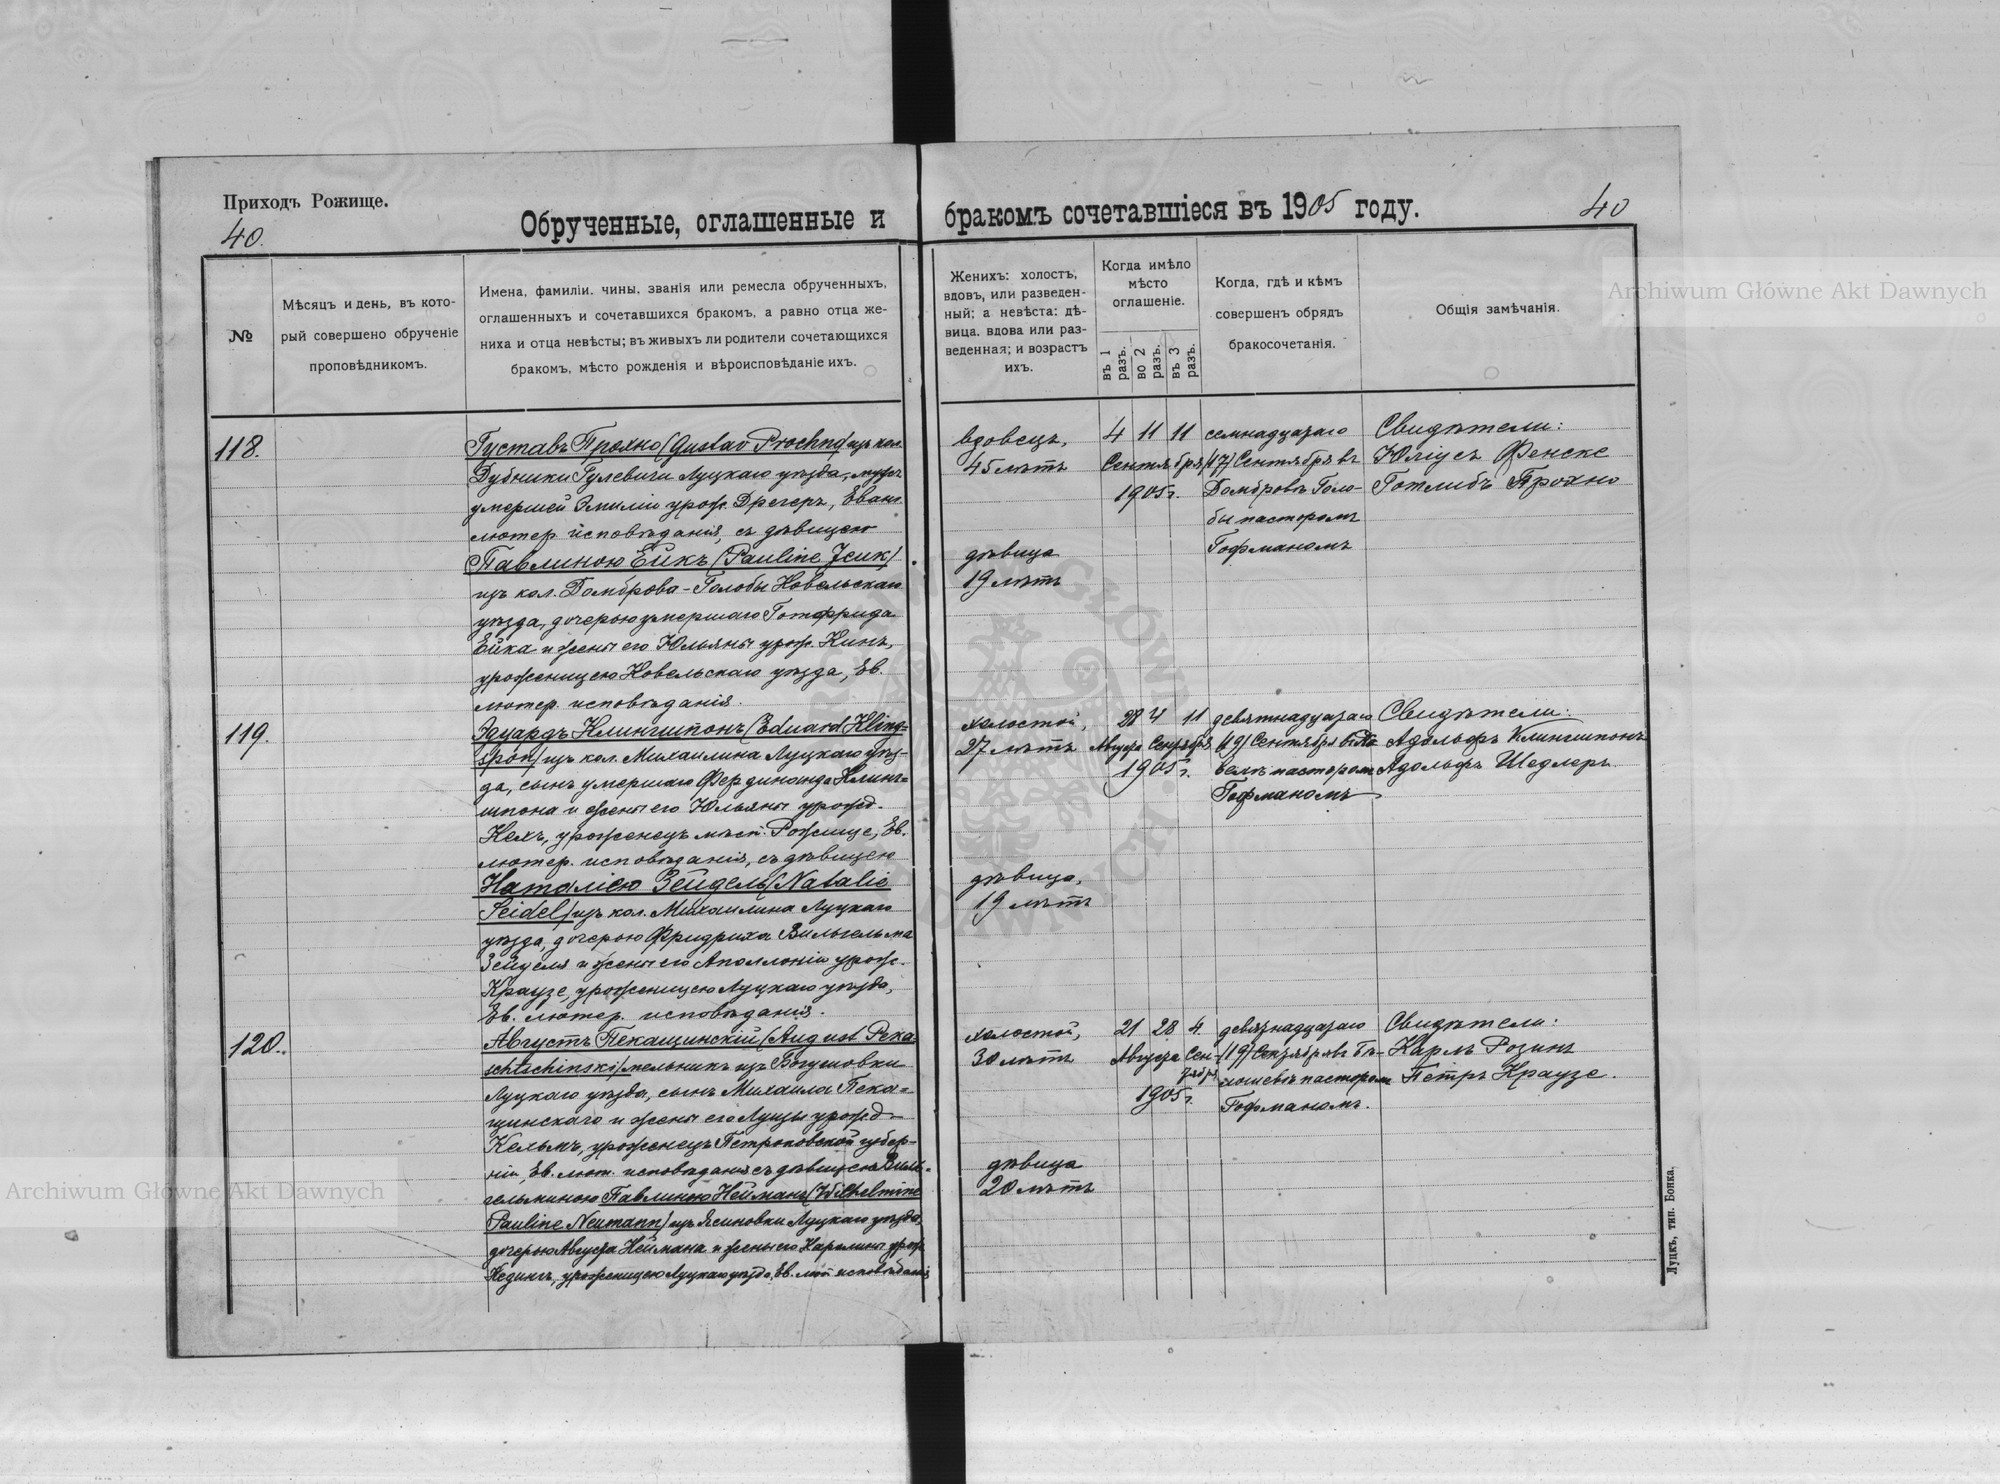 Приходъ Рожище.
40.
Обрученные, оглашенные и
бракомъ сочетавшіеся въ 1905 году.
40
№
Мѣсяцъ и день, въ кото-
рый совершено обрученіе
проповѣдникомъ.
Имена, фамиліи, чины, званія или ремесла обрученныхъ,
оглашенныхъ и сочетавшихся бракомъ, а равно отца же-
ниха и отца невѣсты; въ живыхъ ли родители сочетающихся
бракомъ, мѣсто рожденія и вѣроисповѣданіе ихъ.
Женихъ: холостъ,
вдовъ, или разведен-
ный; а невѣста: дѣ-
вица, вдова или раз-
веденная; и возрастъ
ихъ.
Когда имѣло
мѣсто
оглашеніе.
въ 1
разъ.
во 2
разъ.
въ 3
разъ.
Когда, гдѣ и кѣмъ
совершенъ обрядъ
бракосочетанія.
Общія замѣчанія.
118.
Густавъ Прохно (Gustav Prochno) изъ кол.
Дубники Гулевичи Луцкаго уѣзда, мужъ
умершей Эмиліи урож. Дрегеръ, Еванг.
лютер. исповѣданія, съ дѣвицею
Павлиною Ейкъ (Pauline Jeuk)
изъ кол. Домброва-Голобы Ковельскаго
уѣзда, дочерью умершаго Готфрида
Ейка и жены его Юльяны урож. Кинъ,
уроженицею Ковельскаго уѣзда, Ев.
лютер. исповѣданія.
вдовецъ,
45 лѣтъ
дѣвица
19 лѣтъ
4 11 11
Сентября
1905 г.
семнадцатаго
(17) Сентября въ
Домбровѣ Голо-
бы пасторомъ
Гофманомъ
Свидѣтели:
Юліусъ Фенске
Готлибъ Прохно
119.
Эдуардъ Клингшпонъ (Eduard Kling-
spon) изъ кол. Михаилина Луцкаго уѣз-
да, сынъ умершаго Фердинанда Клинг-
шпона и жены его Юльяны урожд.
Кехъ, уроженецъ мѣст. Рожище, Ев.
лютер. исповѣданія, съ дѣвицею
Наталіею Зейдель (Natalie
Seidel) изъ кол. Михаилина Луцкаго
уѣзда, дочерью Фридриха Вильгельма
Зейделя и жены его Аполлоніи урож.
Краузе, уроженицею Луцкаго уѣзда,
Ев. лютер. исповѣданія.
холостой,
27 лѣтъ
дѣвица,
19 лѣтъ
28 4 11
Августа Сентября
1905 г.
девятнадцатаго
(19) Сентября
пасторомъ
Гофманомъ
Свидѣтели:
Адольфъ Клингшпонъ
Адольфъ Шедлеръ.
120.
Августъ Пекащинскій (August Peka-
schtschinski) мельникъ изъ Богушовки
Луцкаго уѣзда, сынъ Михаила Пека-
щинскаго и жены его Луизы урожд.
Кельмъ, уроженецъ Петроковской губер-
ніи, Ев. лют. исповѣданія съ дѣвицею Виль-
гельминою Павлиною Нейманъ (Wilhelmine
Pauline Neumann) изъ Ясиновки Луцкаго уѣзда,
дочерью Августа Неймана и жены его Каролины урож.
Кедингъ, уроженицею Луцкаго уѣзда, Ев. лют. исповѣданія
холостой,
30 лѣтъ
дѣвица
20 лѣтъ
21 28 4
Августа Сен-
тября
1905 г.
девятнадцатаго
(19) Сентября въ
пасторомъ
Гофманомъ.
Свидѣтели:
Карлъ Розинъ
Петръ Краузе.
Луцкъ, тип. Бонка.
Archiwum Główne Akt Dawnych
Archiwum Główne Akt Dawnych